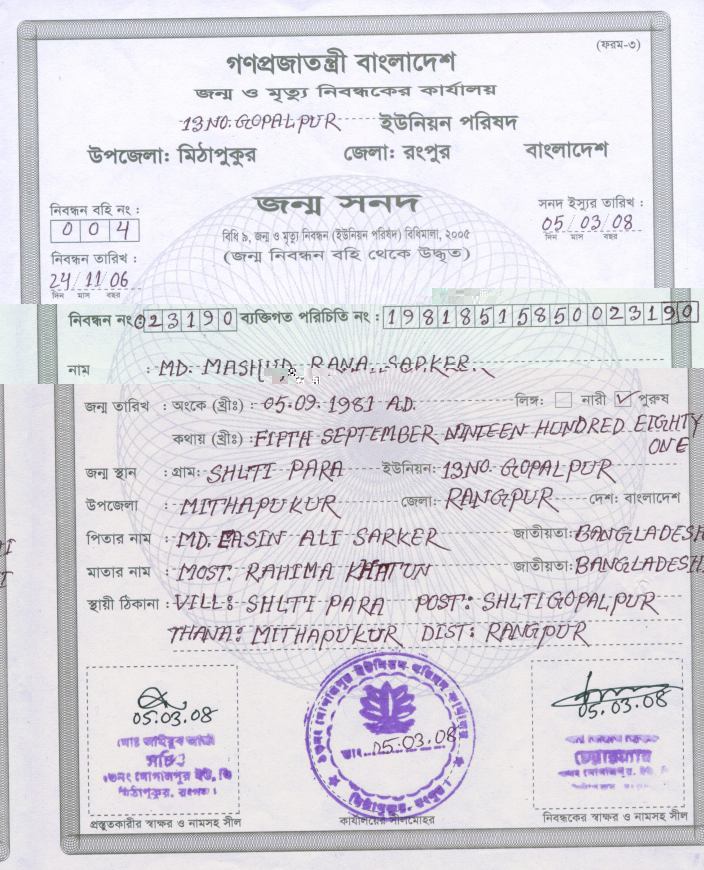 (ফরম-৩)
গণপ্রজাতন্ত্রী বাংলাদেশ
জন্ম ও মৃত্যু নিবন্ধকের কার্যালয়
13NO. GOPALPUR ইউনিয়ন পরিষদ
উপজেলা: মিঠাপুকুর জেলা: রংপুর বাংলাদেশ
জন্ম সনদ
নিবন্ধন বহি নং :
004
সনদ ইস্যুর তারিখ :
05/03/08
দিন মাস বছর
বিধি ৯, জন্ম ও মৃত্যু নিবন্ধন (ইউনিয়ন পরিষদ) বিধিমালা, ২০০৫
(জন্ম নিবন্ধন বহি থেকে উদ্ধৃত)
নিবন্ধন তারিখ :
24/11/06
দিন মাস বছর
নিবন্ধন নং 023190 ব্যক্তিগত পরিচিতি নং : 19818515850023190
নাম : MD. MASHUD RANA SARKER
জন্ম তারিখ : অংকে (খ্রীঃ) : 05.09.1981 A.D. লিঙ্গ: নারী ✓ পুরুষ
কথায় (খ্রীঃ) : FIFTH SEPTEMBER NINTEEN HUNDRED EIGHTY
ONE
জন্ম স্থান : গ্রাম: SHLTI PARA ইউনিয়ন: 13NO. GOPALPUR
উপজেলা MITHAPUKUR জেলা: RANGPUR দেশ: বাংলাদেশ
পিতার নাম : MD. EASIN ALI SARKER জাতীয়তা: BANGLADESH
মাতার নাম : MOST. RAHIMA KHATUN জাতীয়তা: BANGLADESH
স্থায়ী ঠিকানা : VILL: SHLTI PARA POST: SHLTIGOPALPUR
THANA: MITHAPUKUR DIST: RANGPUR
05.03.08
সচিব
১৩নং গোপালপুর ইউ, পি
মিঠাপুকুর, রংপুর।
প্রস্তুতকারীর স্বাক্ষর ও নামসহ সীল
১৩নং গোপালপুর ইউনিয়ন পরিষদ কার্যালয়
তাং 05.03.08
মিঠাপুকুর, রংপুর।
কার্যালয়ের সীলমোহর
05.03.08
চেয়ারম্যান
নিবন্ধকের স্বাক্ষর ও নামসহ সীল